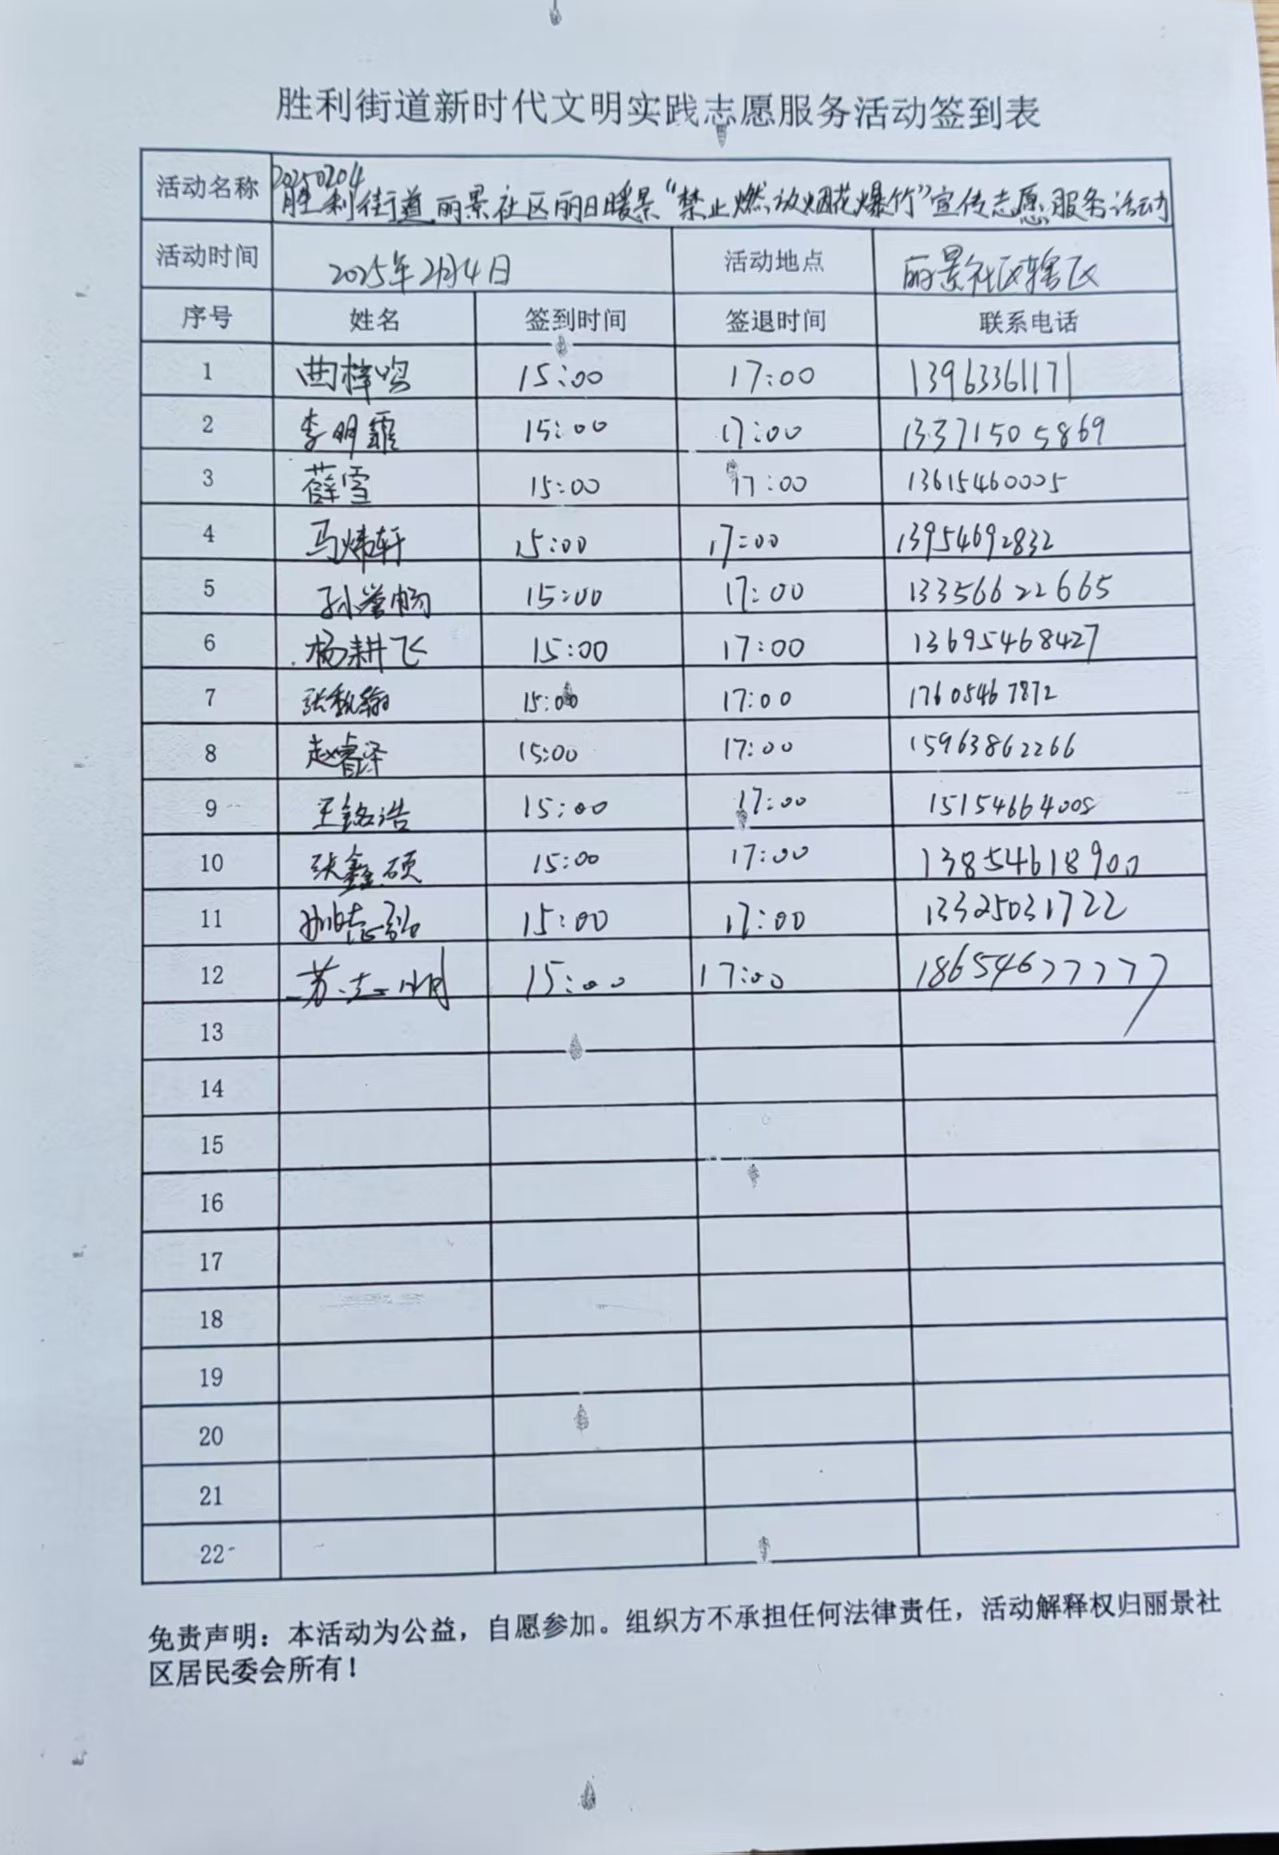 胜利街道新时代文明实践志愿服务活动签到表
活动名称 20250204
胜利街道丽景社区丽日暖景“禁止燃放烟花爆竹”宣传志愿服务活动
活动时间 2025年2月4日 活动地点 丽景社区辖区
序号 姓名 签到时间 签退时间 联系电话
1 曲梓鸣 15:00 17:00 13963361171
2 李明霏 15:00 17:00 13371505869
3 薛雪 15:00 17:00 13615460005
4 马炜轩 15:00 17:00 13954692832
5 孙誉畅 15:00 17:00 13356622665
6 杨耕飞 15:00 17:00 13695468427
7 15:00 17:00 17605467872
8 赵睿泽 15:00 17:00 15963862266
9 王铭浩 15:00 17:00 15154664008
10 张鑫硕 15:00 17:00 13854618900
11 15:00 17:00 13325031722
12 苏志明 15:00 17:00 18654677777
13
14
15
16
17
18
19
20
21
22
免责声明：本活动为公益，自愿参加。组织方不承担任何法律责任，活动解释权归丽景社
区居民委会所有！